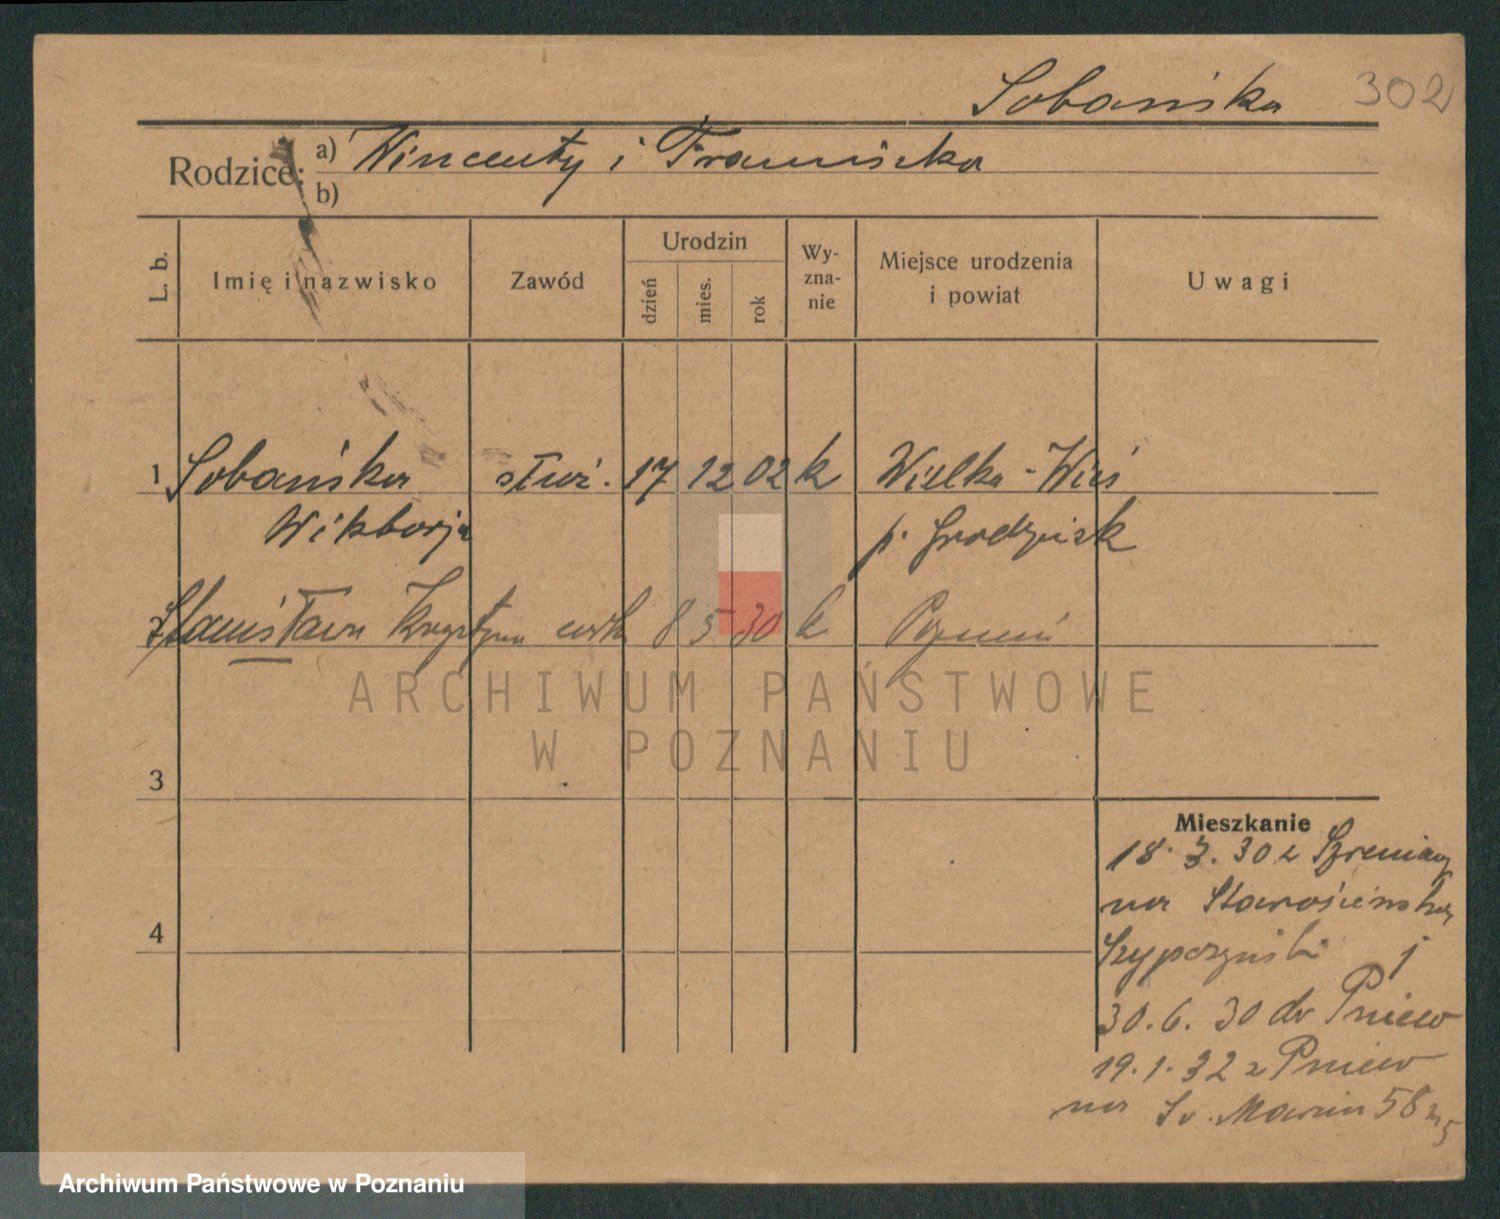 Sobańska 302
Rodzice: a) Wincenty i Franciszka
b)
L. b. Imię i nazwisko Zawód Urodzin dzień mies. rok Wy-zna-nie Miejsce urodzenia i powiat Uwagi
1 Sobańska służ. 17 12 02 k Wielka-Wieś
Wiktorja p. Grodzisk
2 Stanisława Krystyna córk 8 5 30 k Poznań
ARCHIWUM PAŃSTWOWE
W POZNANIU
3
Mieszkanie
18. 3. 30 z
na Starościńska
4
1
30. 6. 30 do Pniew
19. 1. 32 z Pniew
na Św. Marcin 58 m 5
Archiwum Państwowe w Poznaniu